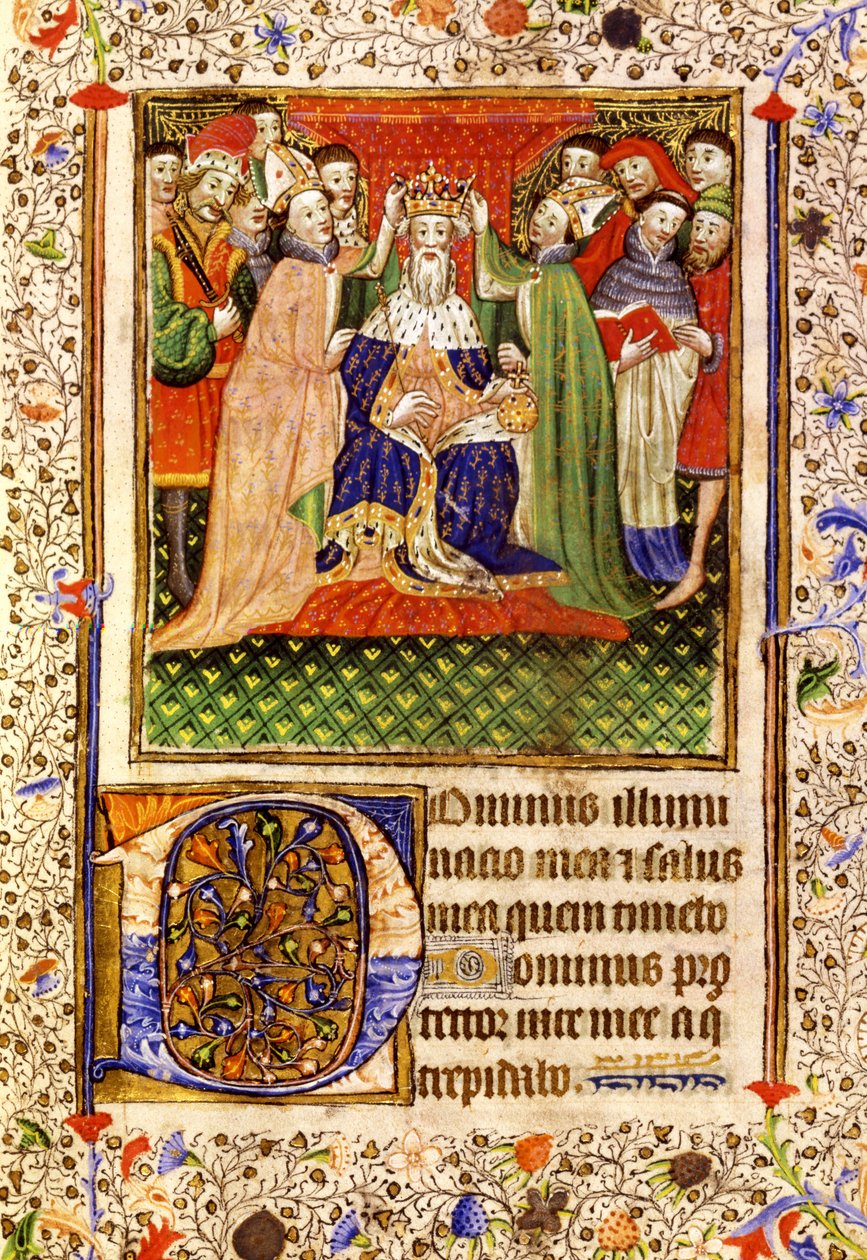 Dominus illumi
nacio mea ⁊ salus
mea quem timebo
Dominus pro
tector vite mee a q
trepidabo.